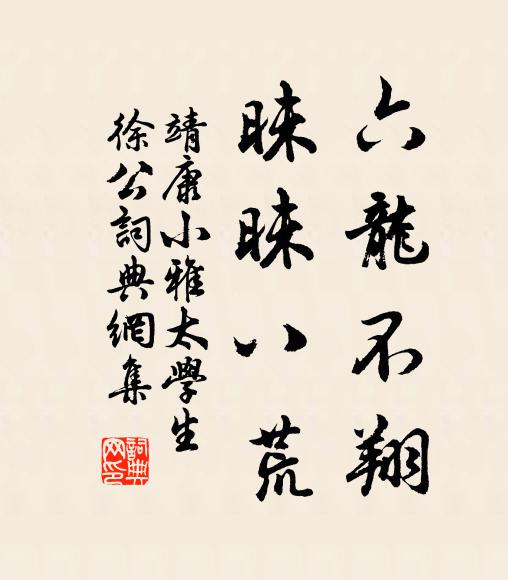 六龍不翔
昧昧八荒
靖康小雅太學生
徐公詞典網集
詞典
网印